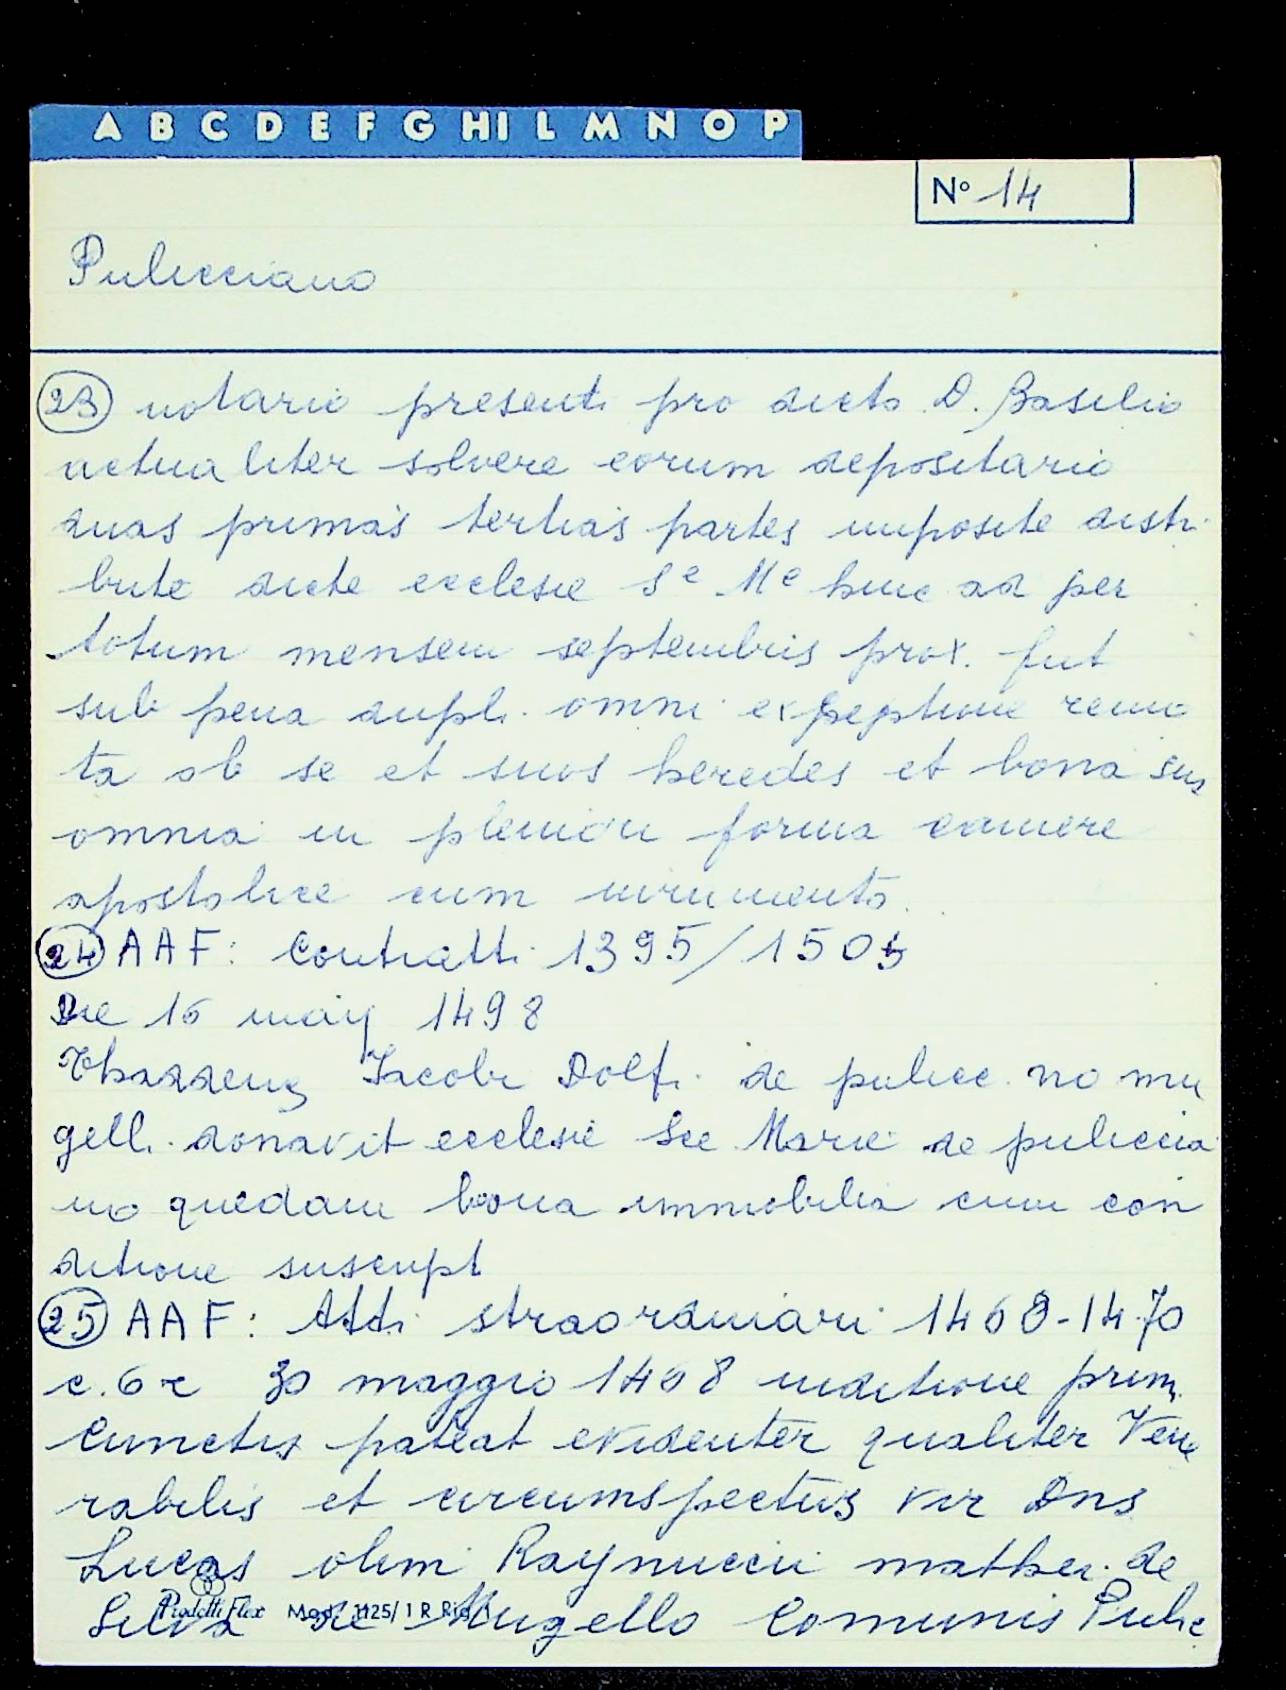 A B C D E F G HI L M N O P
N° 14
Pulicciano
23 notario presenti pro dicto D. Basilio
actualiter solvere eorum depositario
duas primas tertias partes imposite distri
bute dicte ecclesie Se Me hinc ad per
totum mensem septembris prox. fut
sub pena dupli. omni exceptione remo
ta ob se et suos heredes et bona sua
omnia in pleniori forma camere
apostolice cum iuramento.
24 AAF: Contratti 1395/1505
Die 16 maij 1498
Thaddeus Jacobi Dolfi de pulicc. no mu
gelli. donavit ecclesie Sce Marie de puliccia
no quedam bona immobilia cum con
ditione suscript
25 AAF: Atti straordinari 1468-1470
c. 6r 30 maggio 1468 inditione prim.
Cunctis pateat evidenter qualiter Vene
rabilis et circumspectus vir Dns
Lucas olim Raynuccii mathei de
Silva de Mugello Comunis Pulic
Prodotti Flex Mod. 1125/1 R Rig.